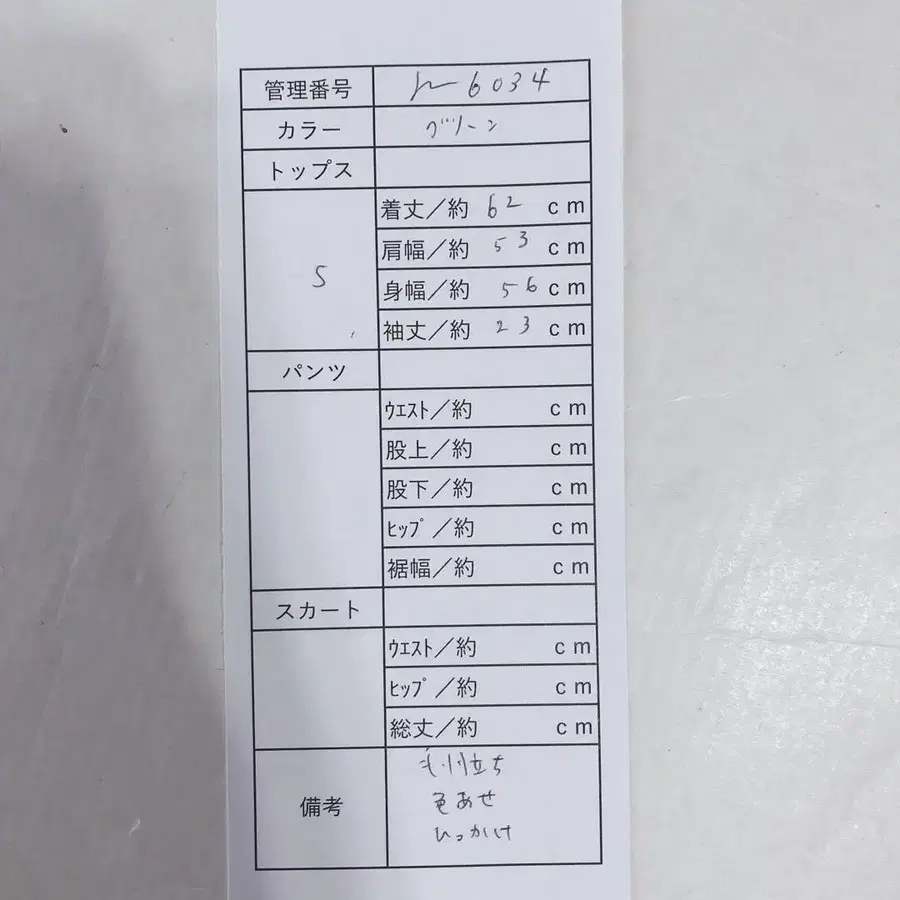 管理番号 6034
カラー グリーン
トップス
S
着丈／約 62 cm
肩幅／約 53 cm
身幅／約 56 cm
袖丈／約 23 cm
パンツ
ｳｴｽﾄ／約 cm
股上／約 cm
股下／約 cm
ﾋｯﾌﾟ／約 cm
裾幅／約 cm
スカート
ｳｴｽﾄ／約 cm
ﾋｯﾌﾟ／約 cm
総丈／約 cm
備考
毛羽立ち
色あせ
ひっかけ